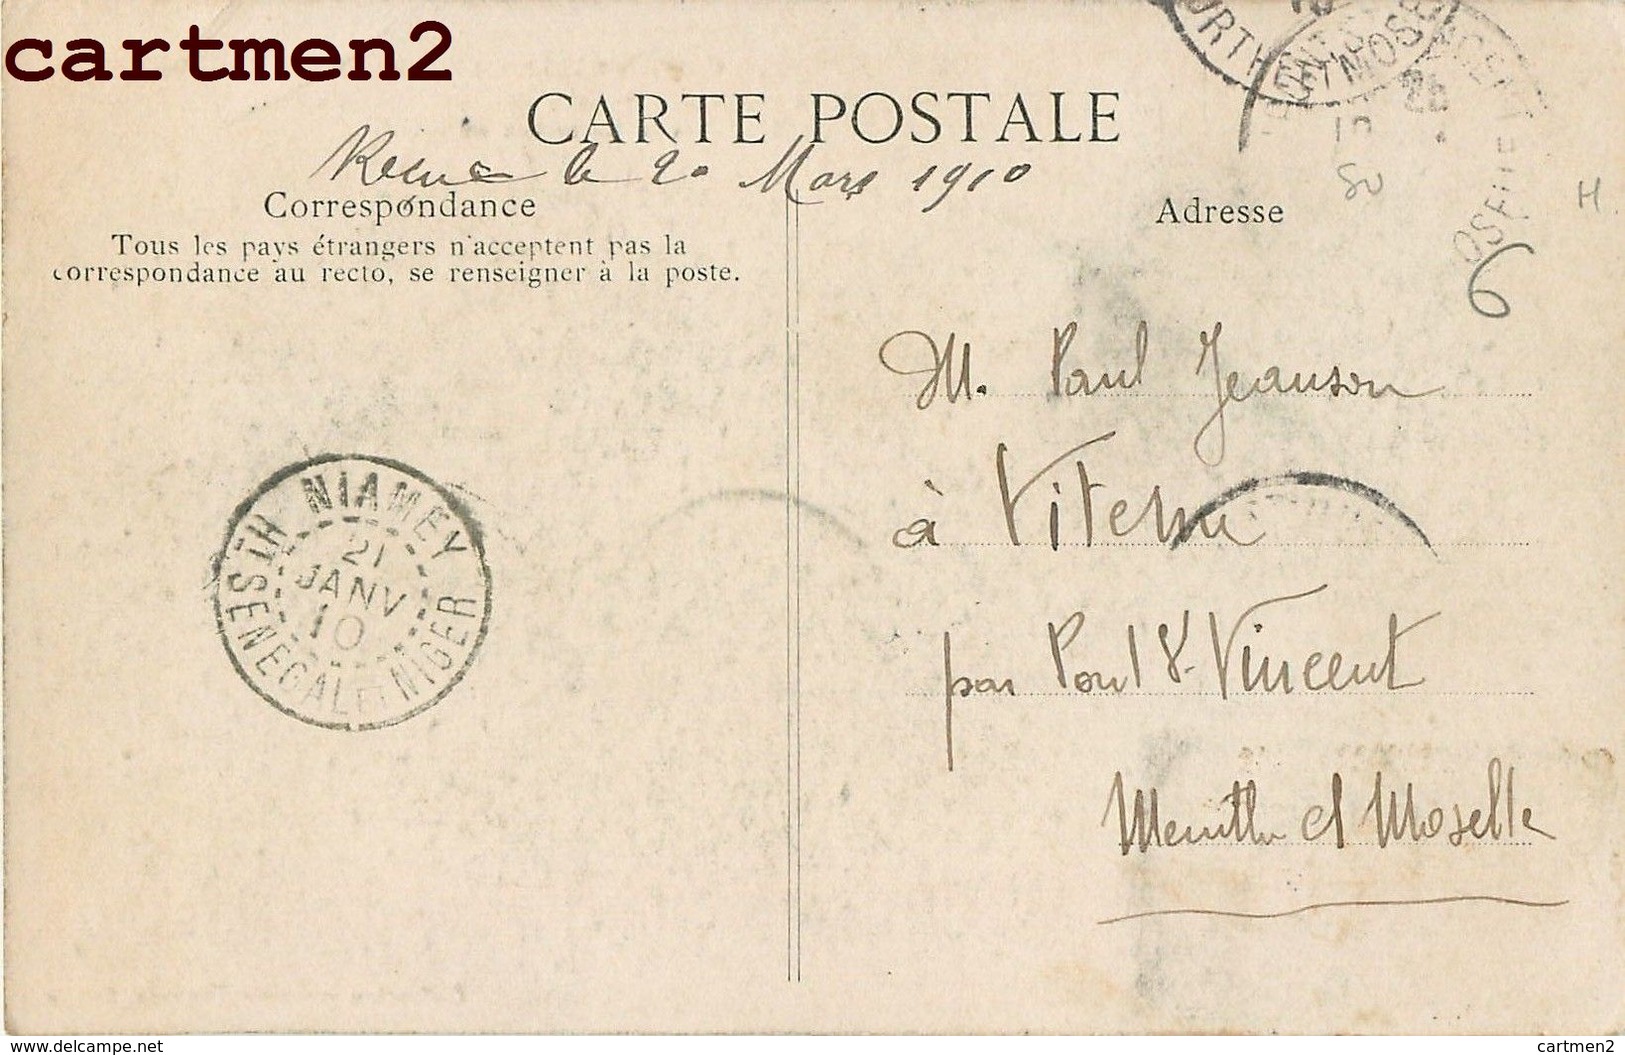 cartmen2
CARTE POSTALE
le 20 Mars 1910
Correspondance
Tous les pays étrangers n'acceptent pas la
correspondance au recto, se renseigner à la poste.
Adresse
H.
6
M. Paul Jeanson
à
par Pont St. Vincent
Meurthe et Moselle
NIAMEY
21
JANV
10
HT SÉNÉGAL ET NIGER
www.delcampe.net
cartmen2